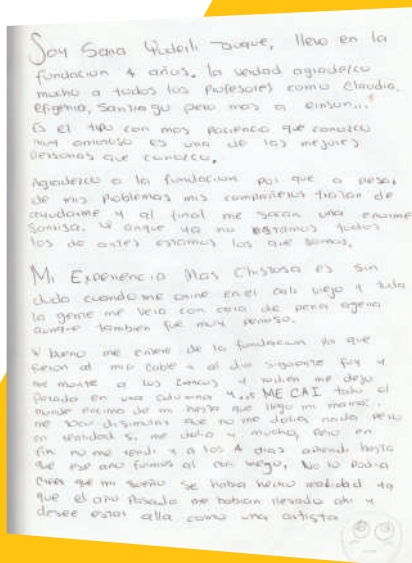 Soy Sara Yuderli Duque, llevo en la
fundacion 4 años. la verdad agradezco
mucho a todos los profesores como Claudia,
efigenia, Santiago pero mas a einson...
Es el tipo con mas paciencia que conozco
muy amoroso es una de las mejores
personas que conozco.
Agradezco a la fundacion por que a pesar
de mis problemas mis compañeros tratan de
ayudarme y al final me sacan una enorme
Sonrisa. Y anque ya no estamos todos
los de antes estamos los que somos.
Mi Experiencia Mas Chistosa es sin
duda cuando me orine en el cali viejo y toda
la gente me veia con cara de pena agena
aunque tambien fue muy penoso.
Y bueno me entere de la fundacion por que
fueron al mio cable y al dia siguiente fui y
me monte a los zancos y me dejo
parada en una columna y... ME CAI todo el
mundo encima de mi hasta que llego mi mamá...
me toco disimular que no me dolia nada pero
en realidad si, me dolia y mucho, pero en
fin no me rendi y a los 4 dias aprendi hasta
que ese año fuimos al cali viejo, No lo podia
creer que mi sueño se habia hecho realidad ya
que el año pasado me habian llevado ahi y
desee estar alla como una artista